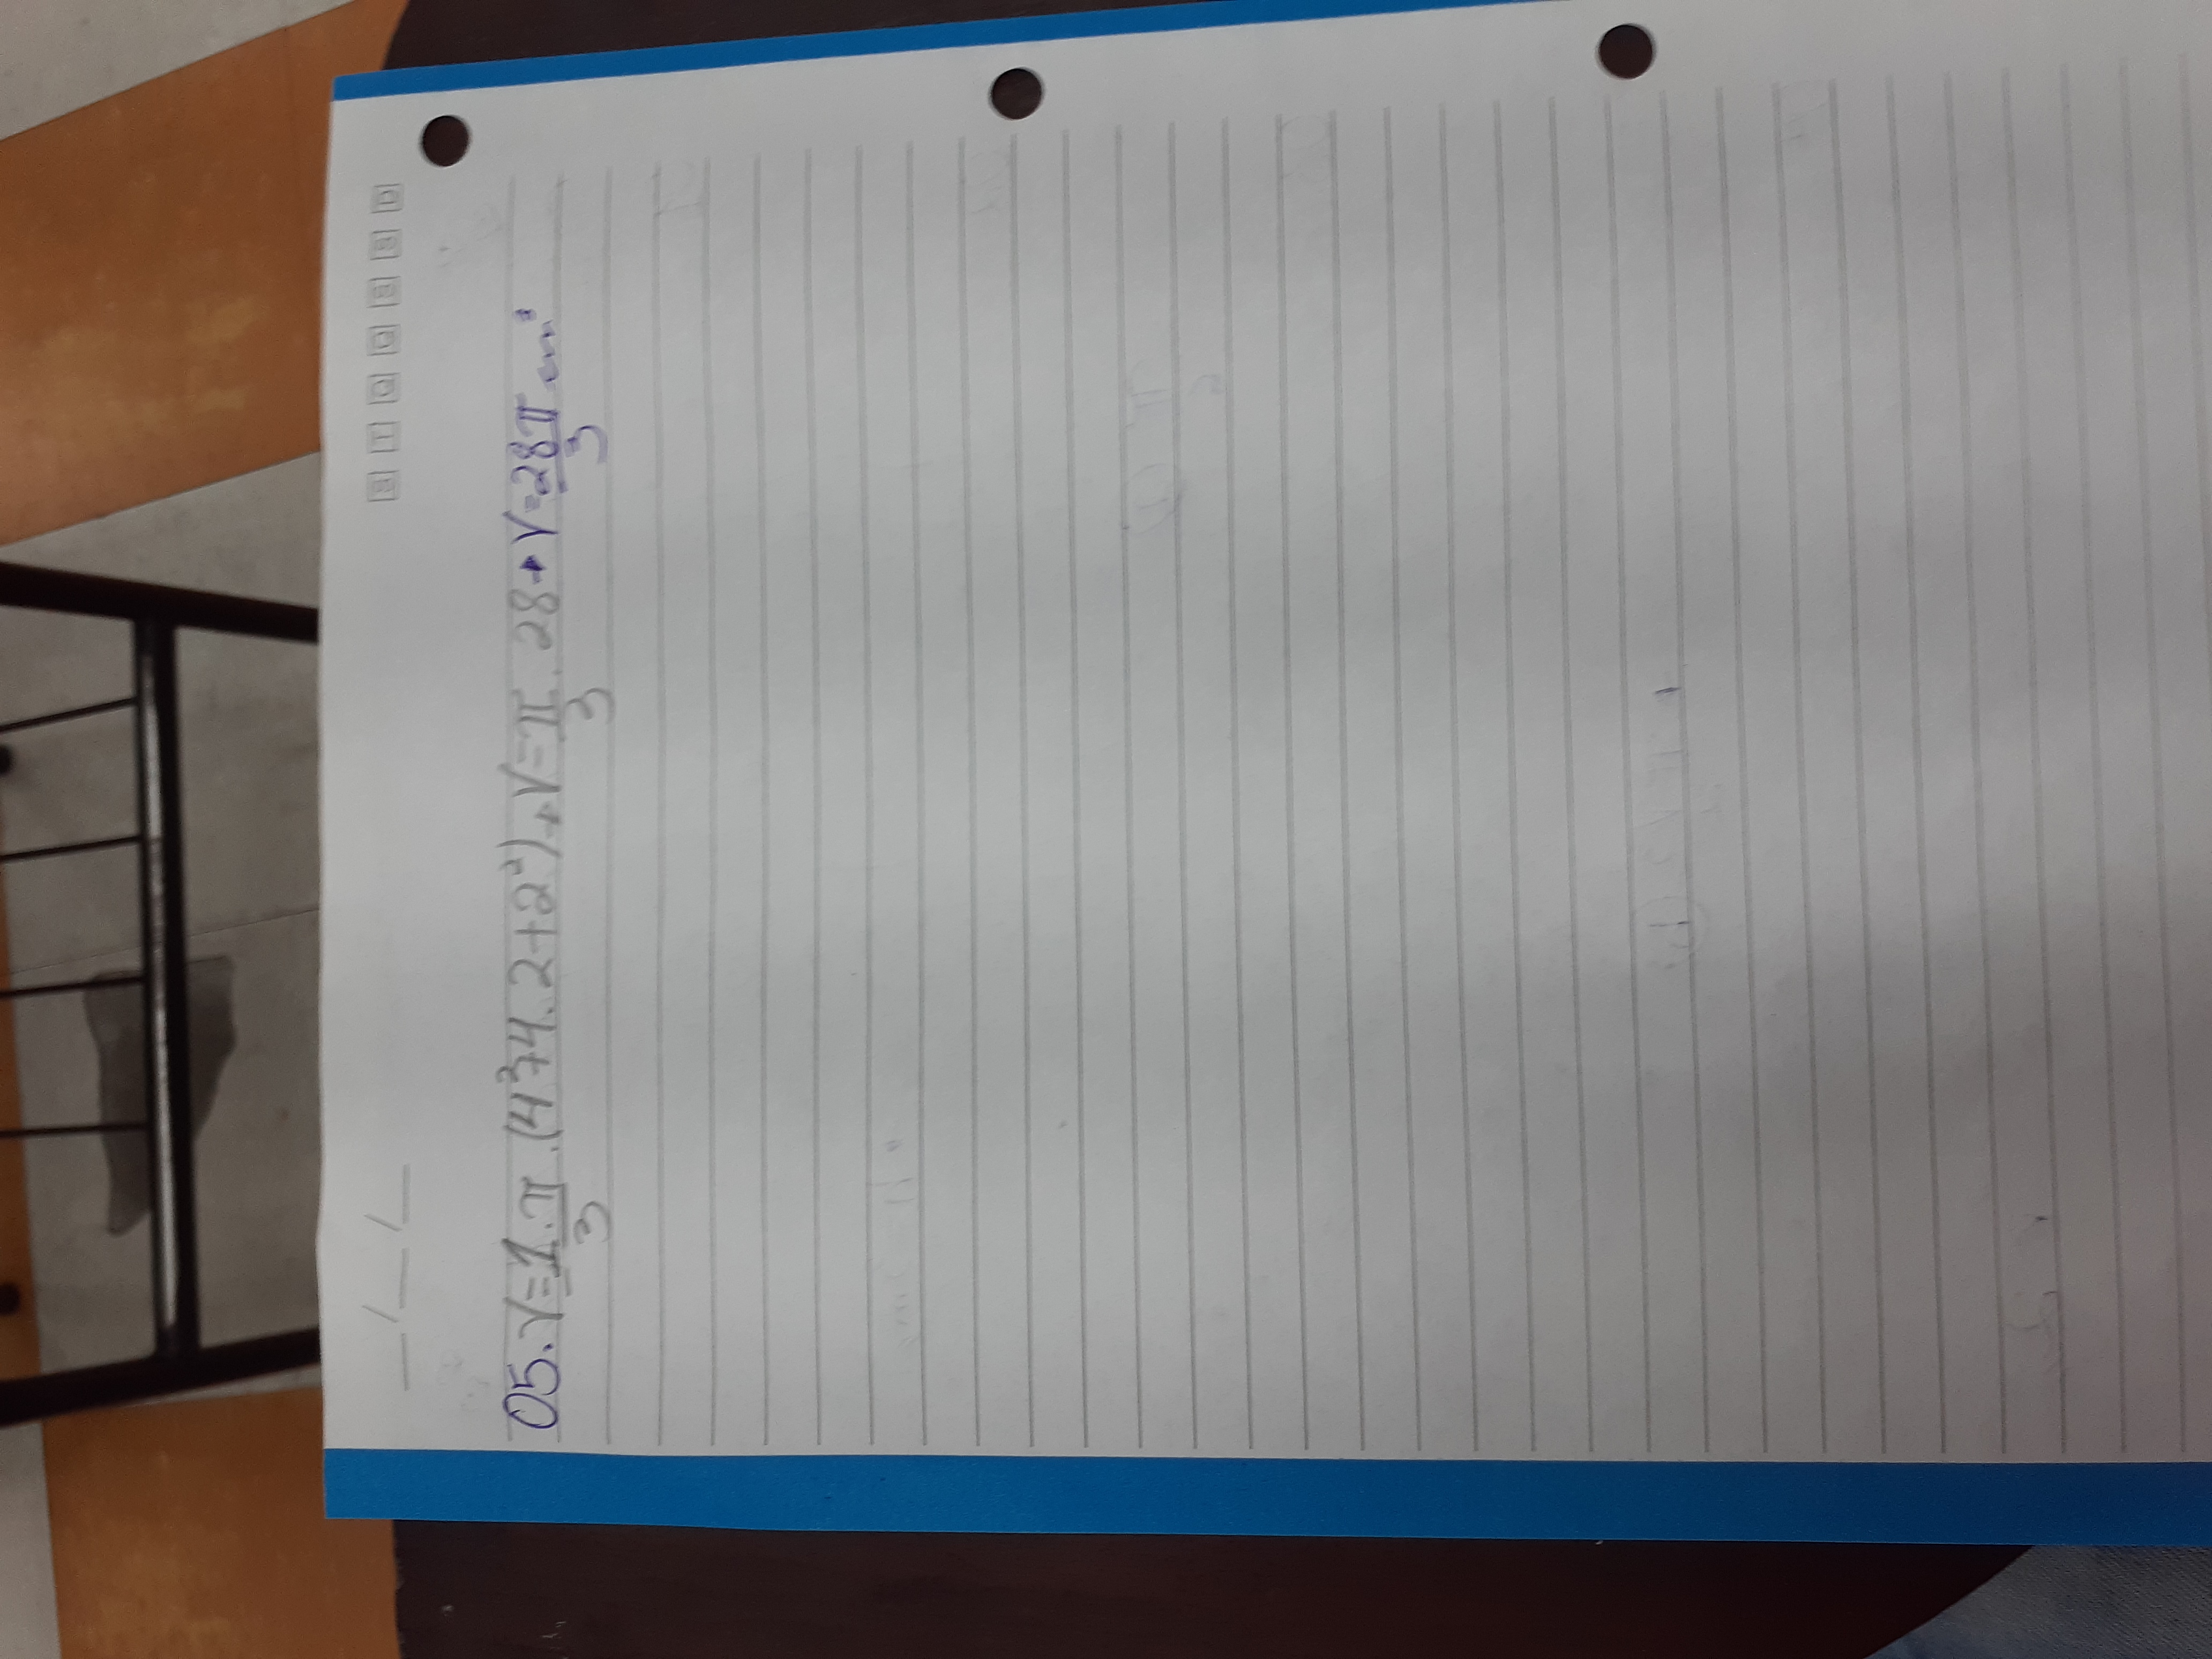 __/__/__ S T Q Q S S D
05. V = 1·π/3 · (4²+4·2+2²) → V = π/3 · 28 → V = 28π/3 cm³